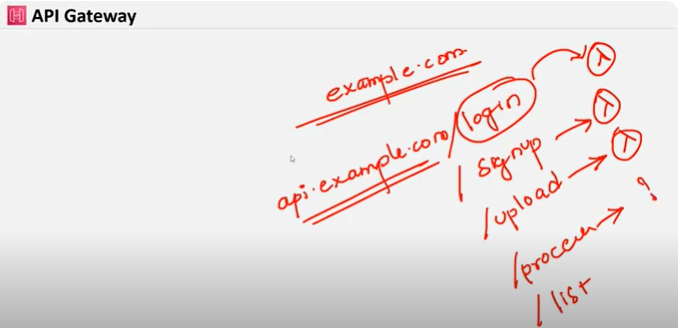 API Gateway
example.com
api.example.com/login
/signup
/upload
/process
/list